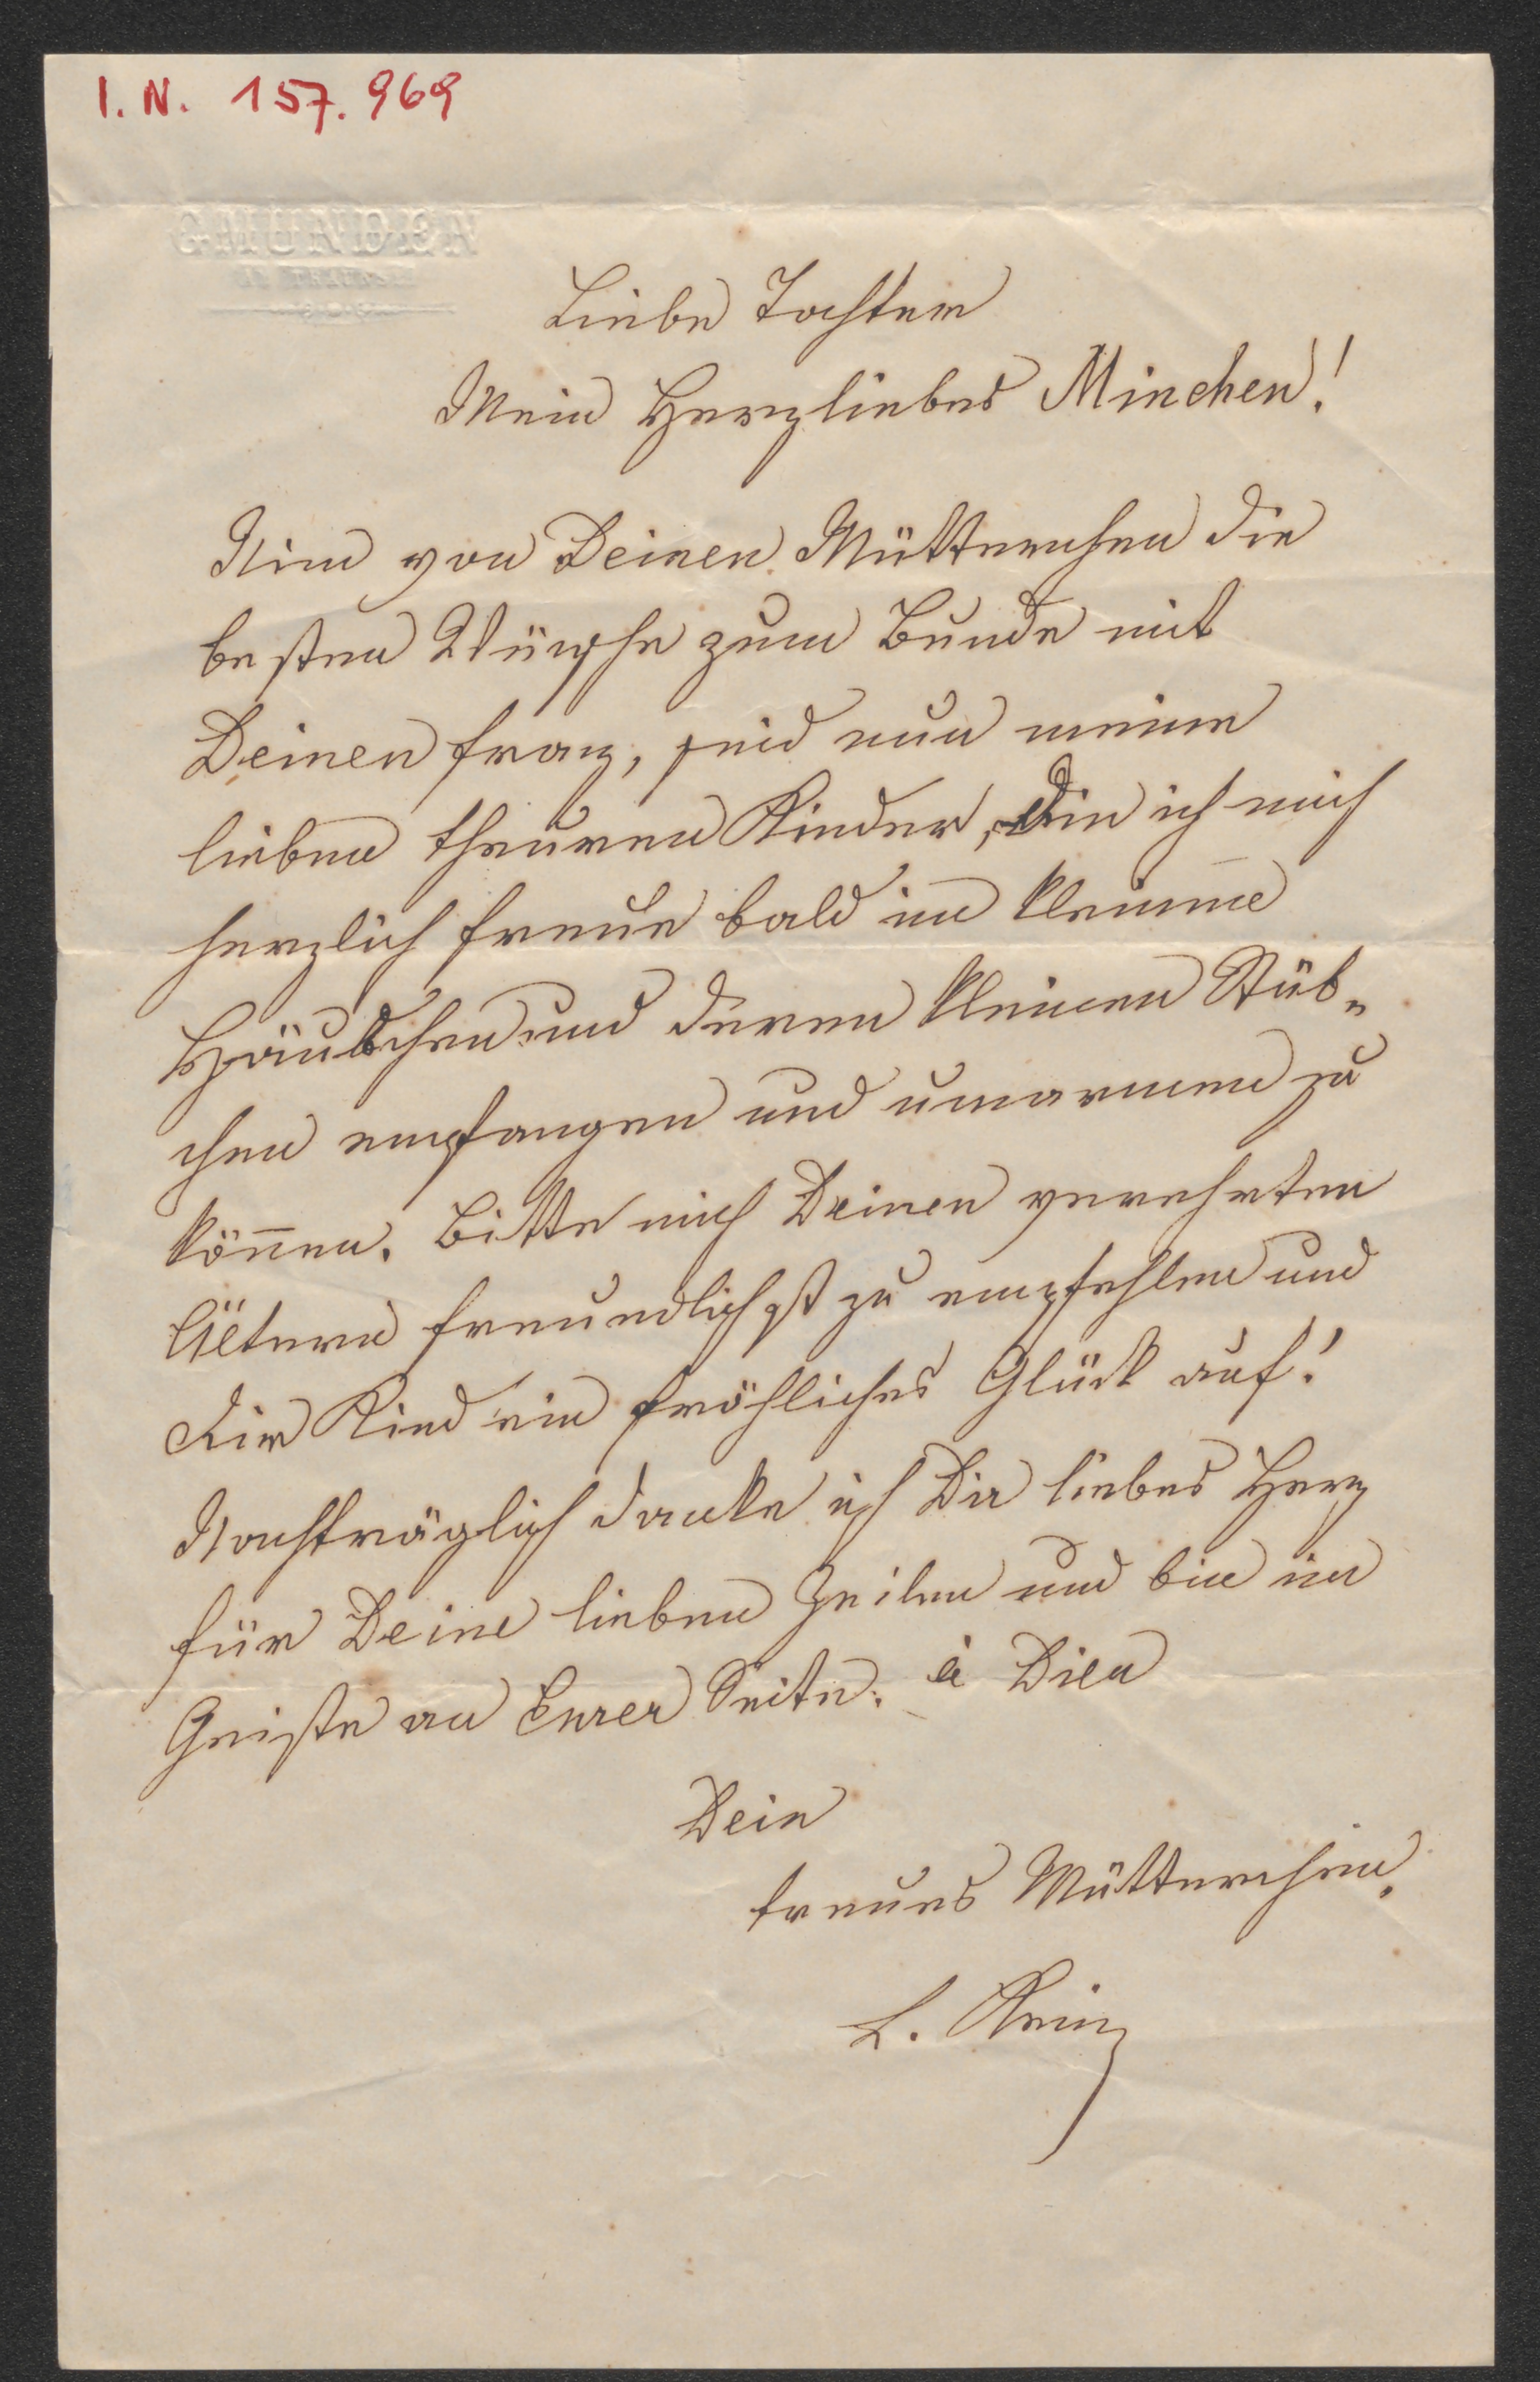 I. N. 157.969
GMUNDEN
Liebe Tochter
Mein Herzliebes Minchen!
Nim von Deinen Mütterchen die
besten Wünsche zum Bunde mit
Deinen Franz, seid nun meine
lieben theuren Kinder, die ich mich
herzlich freue bald im kleinne
Häuschen und deren kleinen Stüb„
chen empfangen und umarmen zu
kön̄en. Bitte mich Deinen verehrten
Ältern freundlichst zu empfehlen und
Dir Kind ein fröhliches Glück auf!
Nachträglich danke ich Dir liebes Herz
für Deine lieben Zeilen und bin im
Geiste an Eurer Seite. à Dieu
Dein
treues Mütterchen.
L.